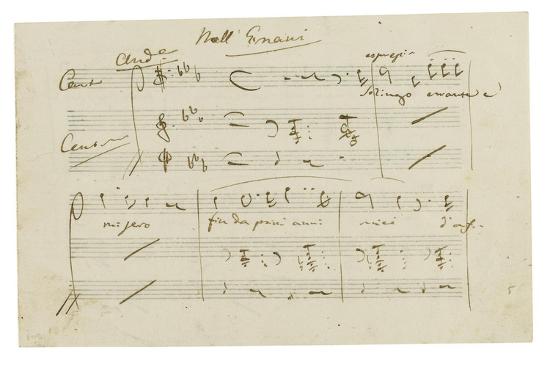 Nell' Ernani
And.e
espress.
Canto
Solingo errante e
Cembalo
misero
fin da primi anni miei d'af..